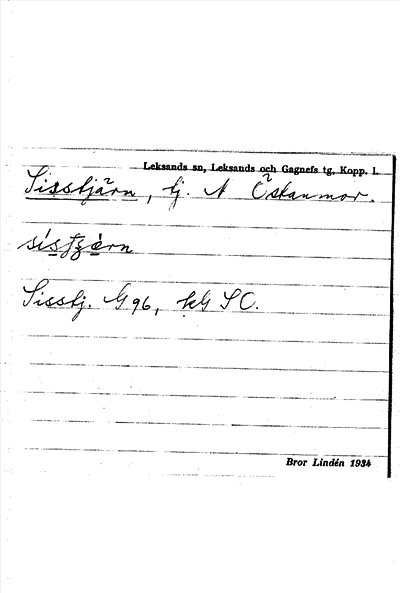 Leksands sn, Leksands och Gagnefs tg, Kopp. l.
Sisstjärn, tj. N Östanmor.
Sisstj. G 96,
Bror Lindén 1934